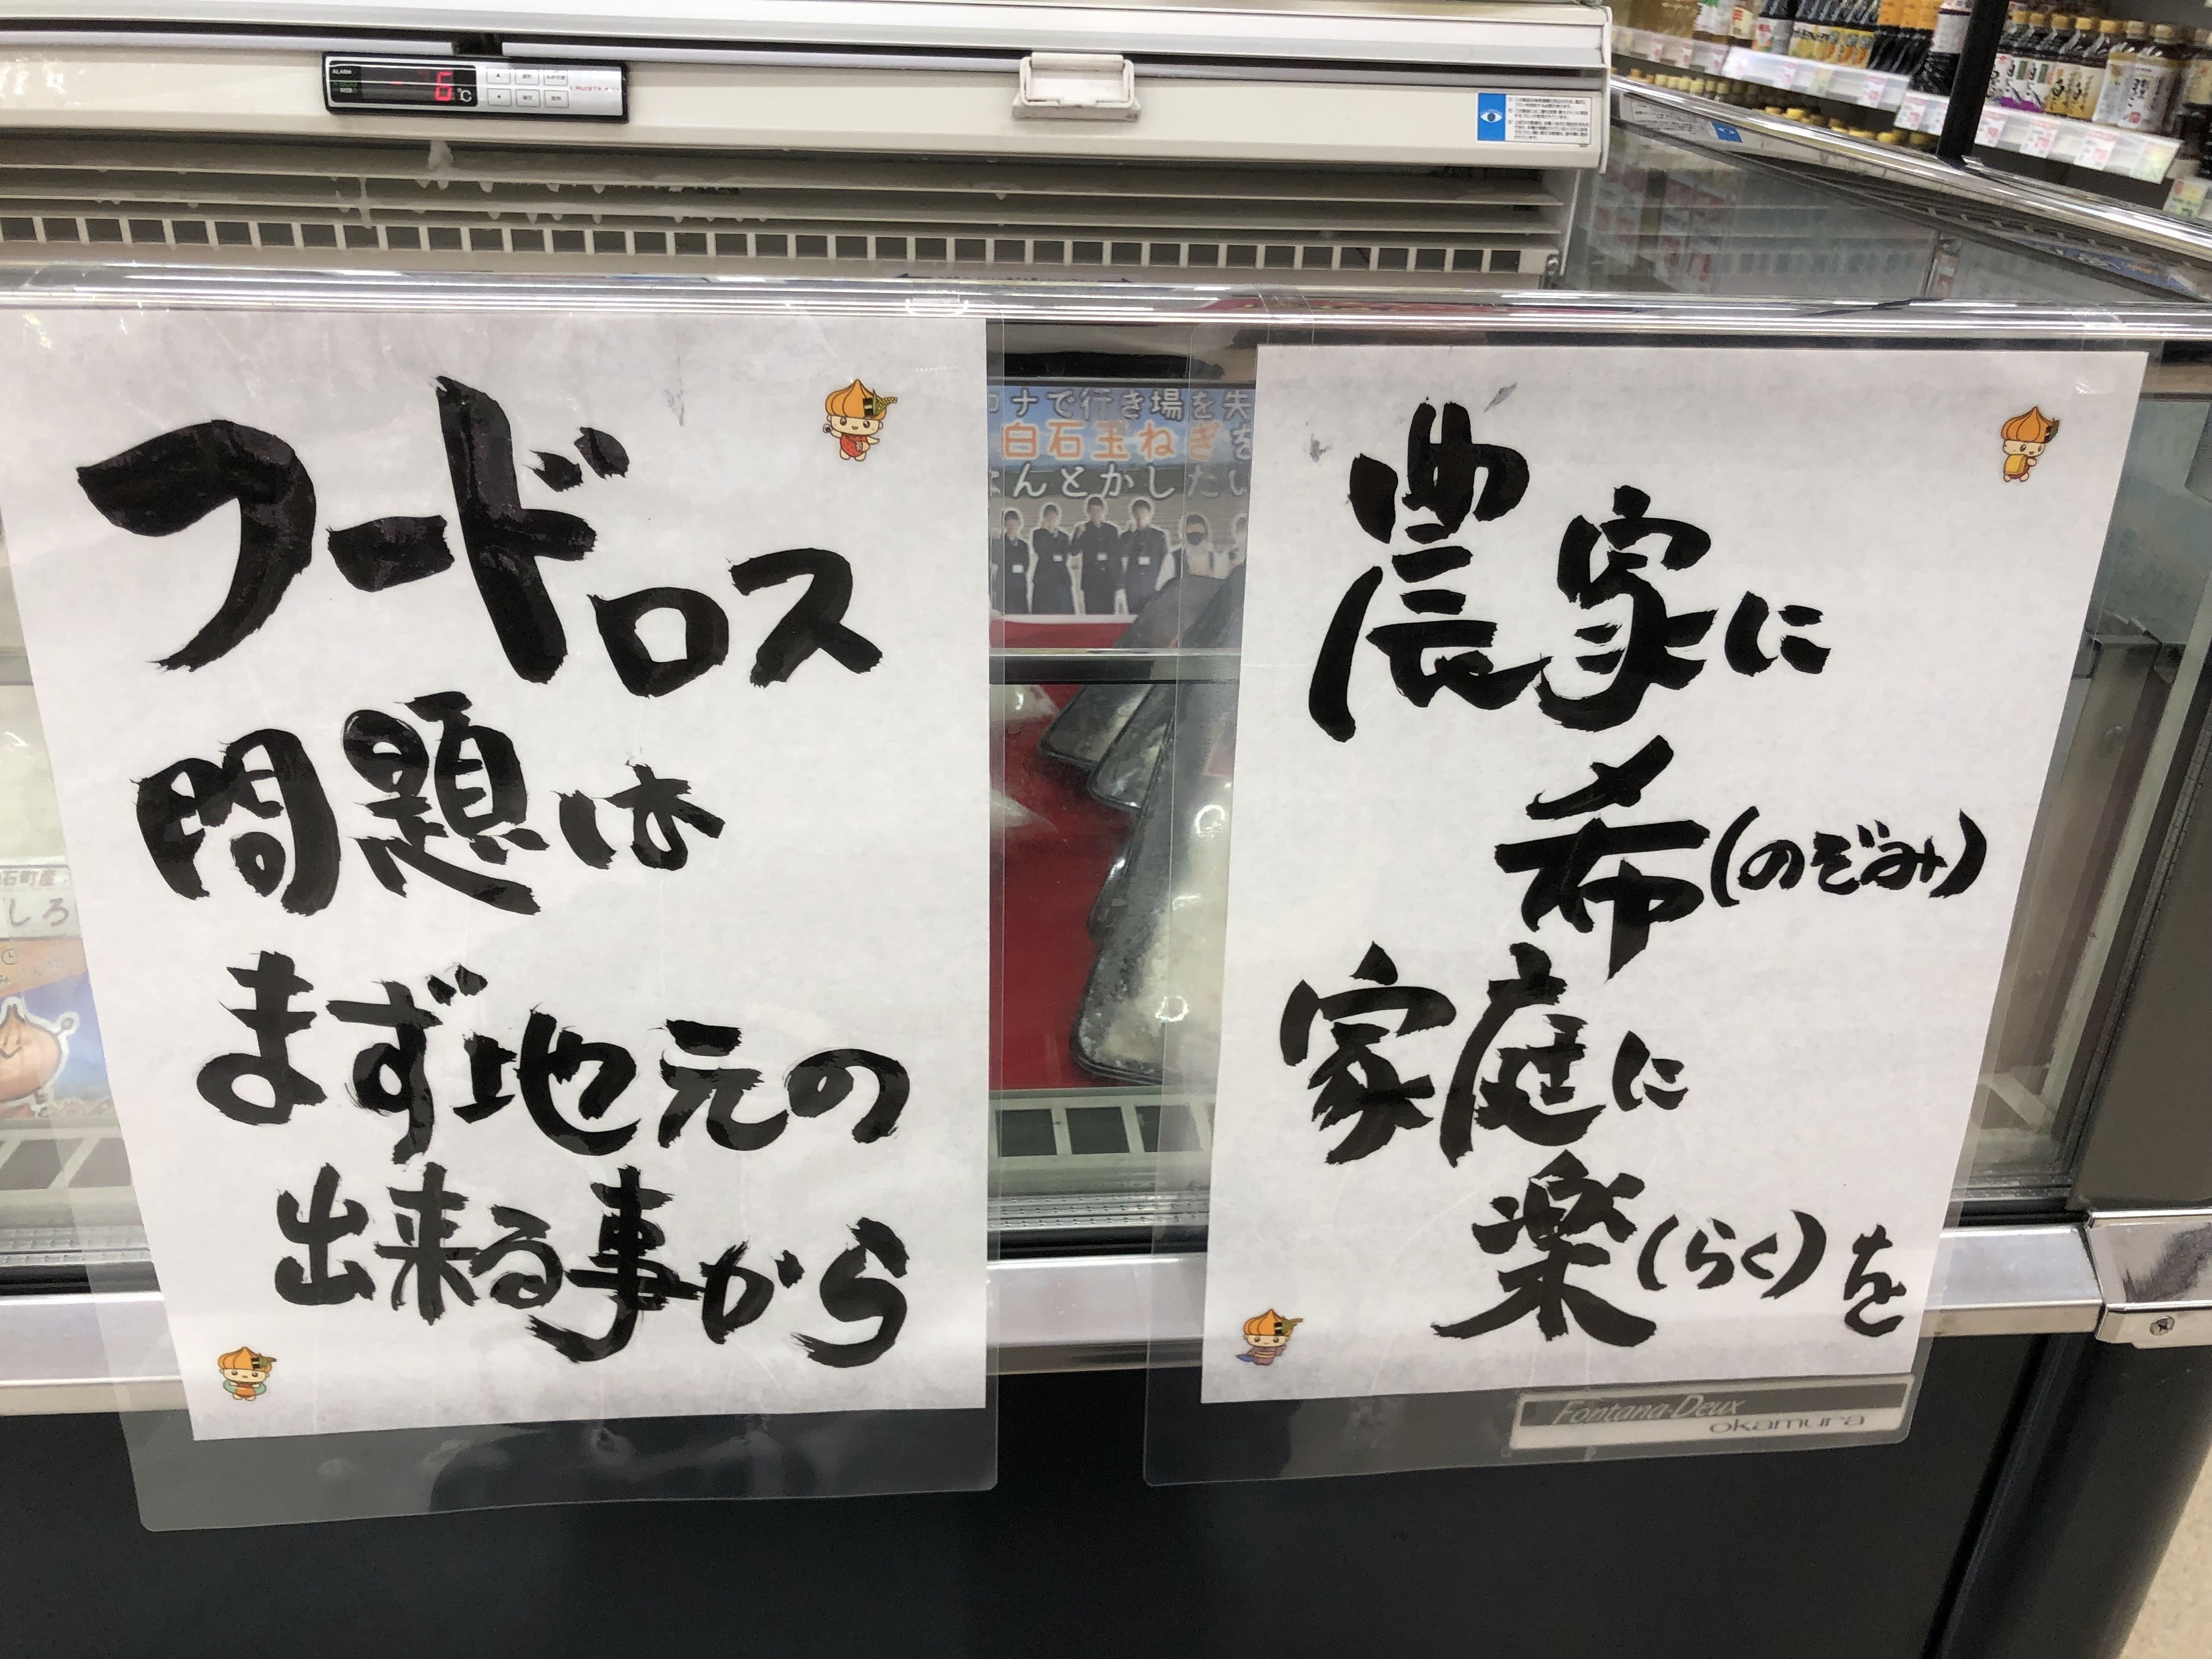 ALARM
6 ℃
フードロス
問題は
まず地元の
出来る事から
ナで行き場を失
白石玉ねぎを
んとかしたい
農家に
希(のぞみ)
家庭に
楽(らく)を
石町産
しろ
Fontana-Deux
okamura